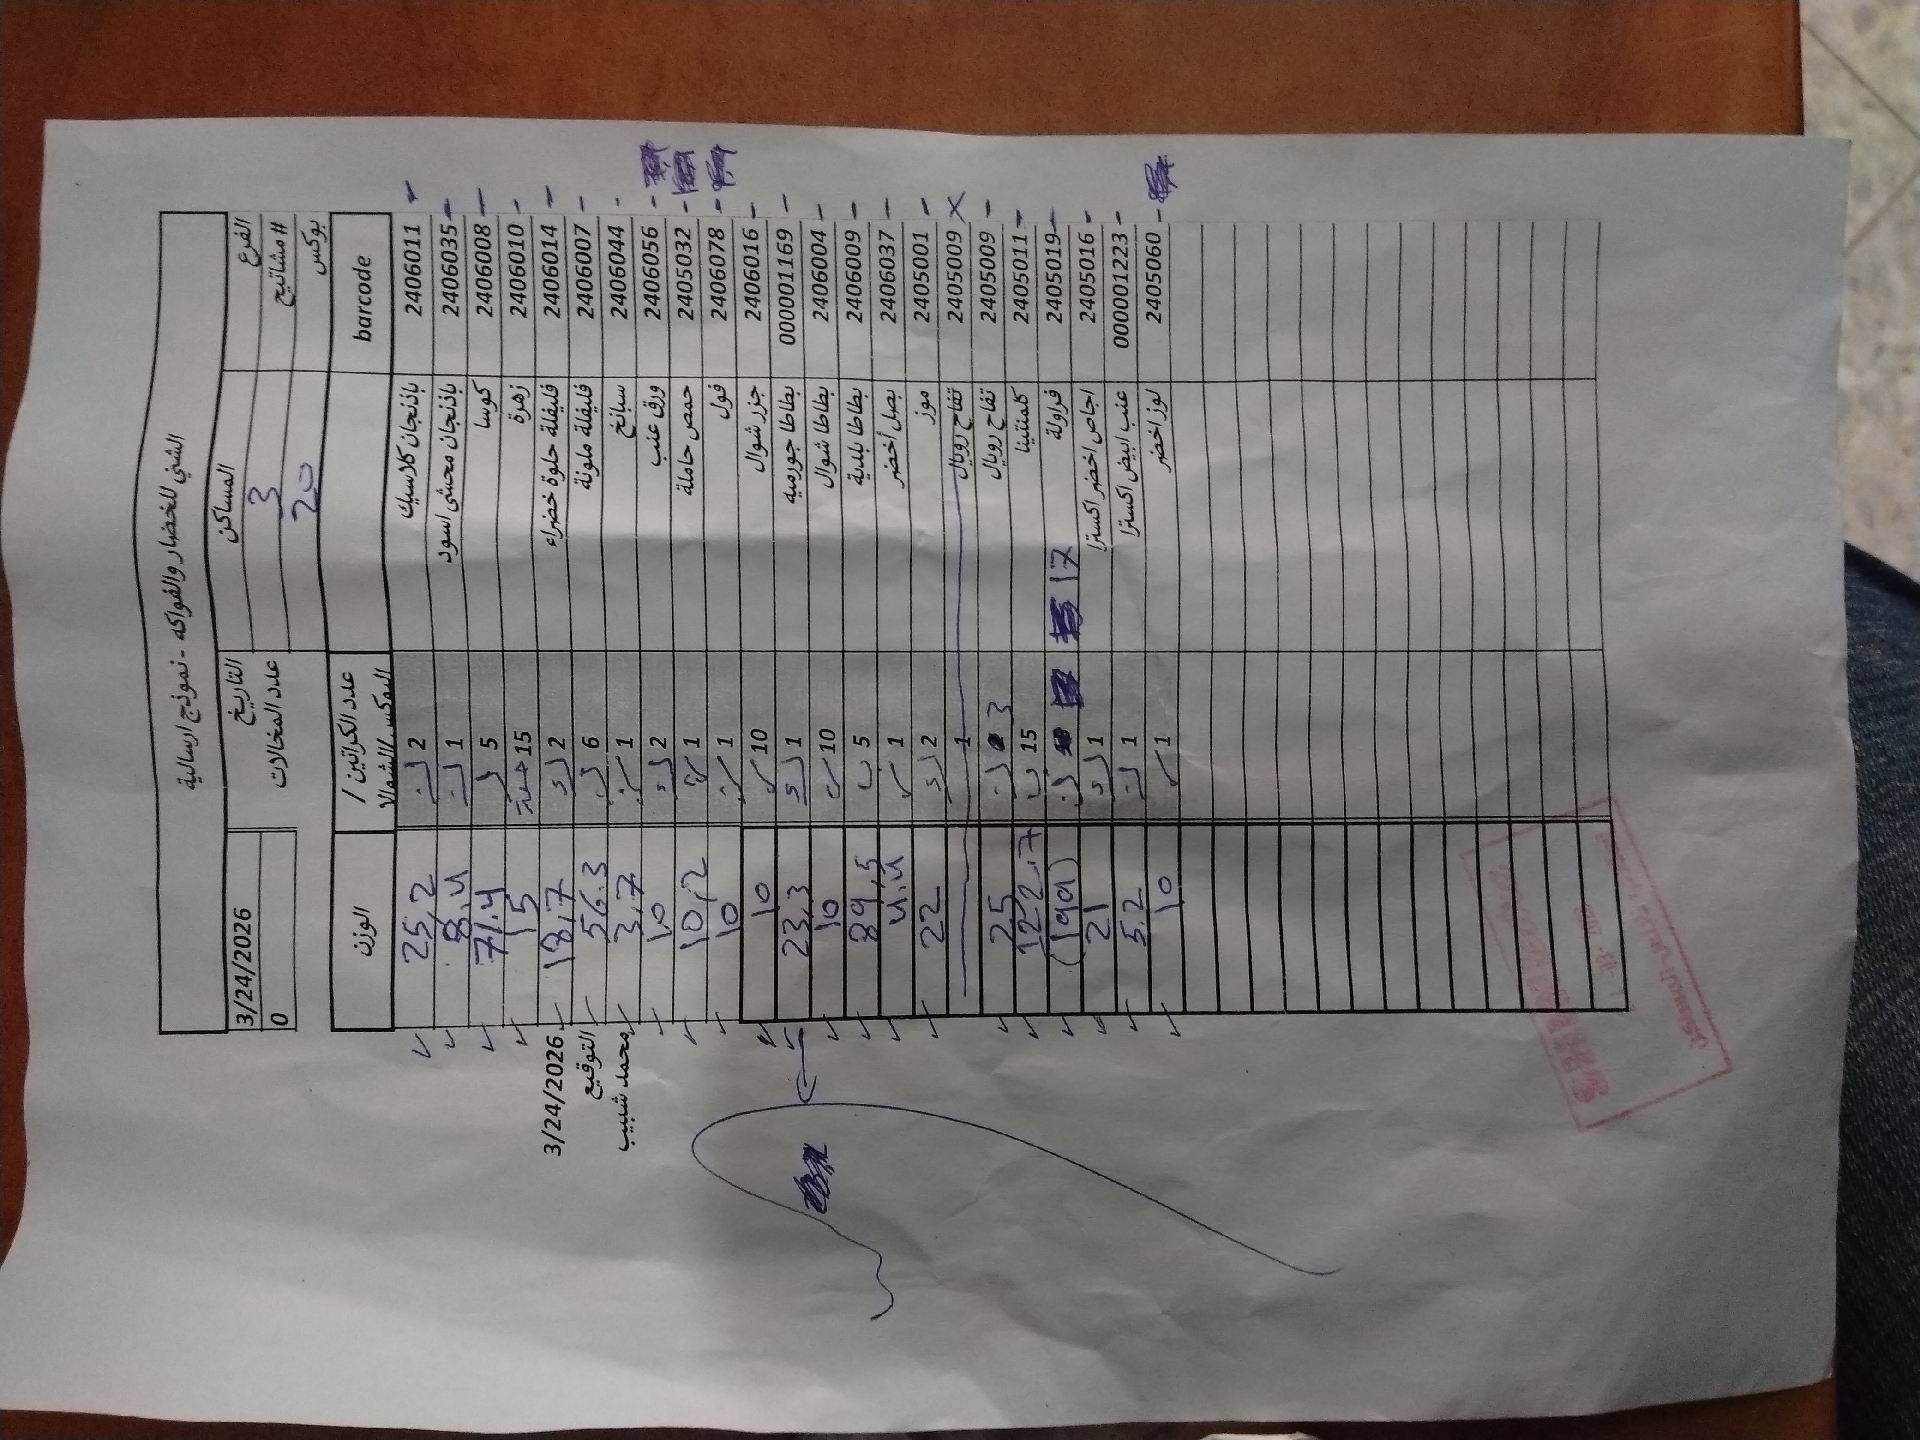 الشني للخضار والفواكه - نموذج ارسالية
الفرع المساكن التاريخ 3/24/2026
# مشاتيح 3 عدد المخالات 0
بوكس 20
barcode عدد الكراتين / البكس/الشوالا الوزن
2406011 باذنجان كلاسيك 2 25,2
2406035 باذنجان محشي اسود 1 8,4
2406008 كوسا 5 71.4
2406010 زهرة 15 15
2406014 فليفلة حلوة خضراء 2 18,7
2406007 فليفلة ملونة 6 56.3
2406044 سبانخ 1 3,7
2406056 ورق عنب 2 10
2405032 حمص حاملة 1 10,2
2406078 فول 1 10
2406016 جزر شوال 10 10
000001169 بطاطا جورميه 1 23,3
2406004 بطاطا شوال 10 10
2406009 بطاطا بلدية 5 89,5
2406037 بصل أخضر 1 4.4
2405001 موز 2 22
2405009 تفاح رويال 1
2405009 تفاح رويال 3 25
2405011 كلمنتينا 15 122.7
2405019 فراولة 17 (199)
2405016 اجاص اخضر اكسترا 1 21
000001223 عنب ابيض اكسترا 1 5.2
2405060 لوز اخضر 1 10
3/24/2026
التوقيع
محمد شبيب